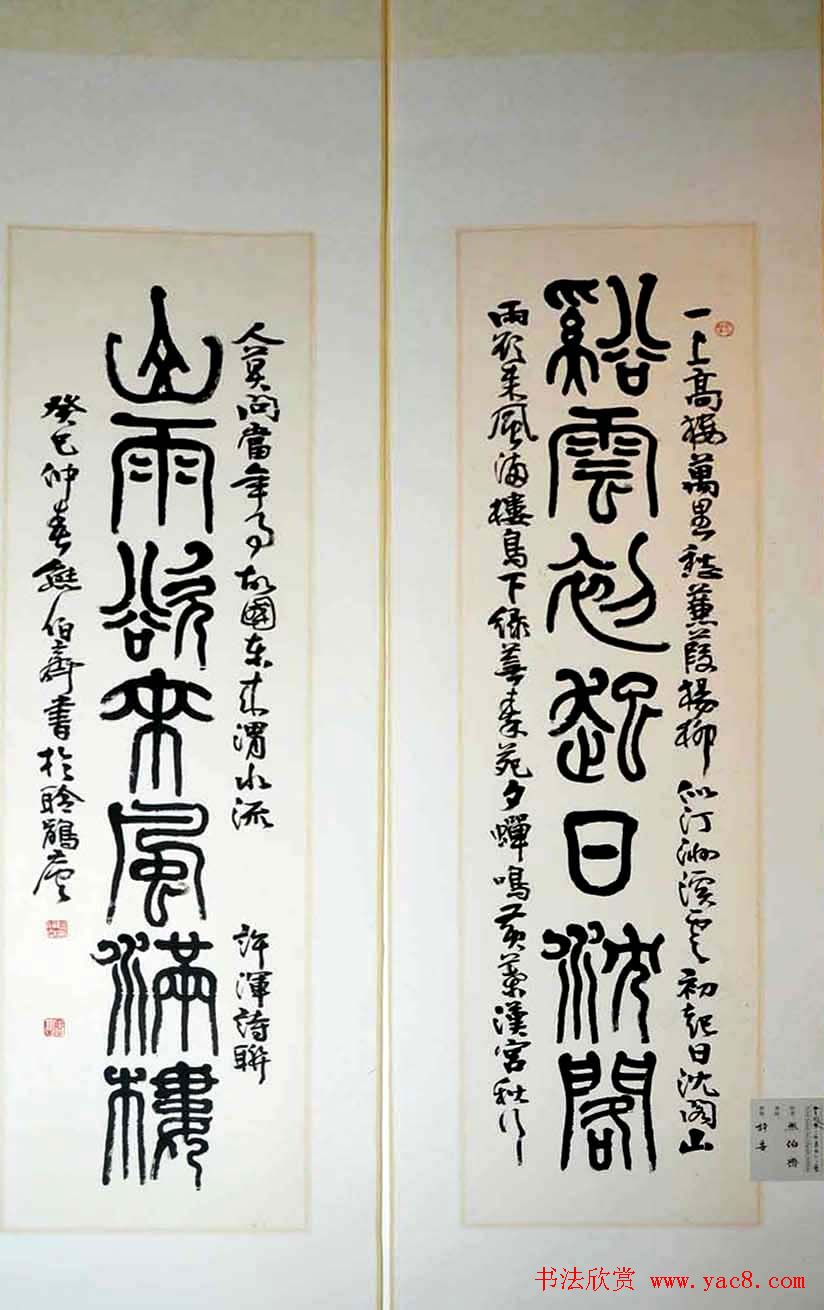 一上高樓萬里愁蒹葭楊柳似汀洲溪雲初起日沈閣山
谿雲初起日沈閣
雨欲来風滿樓鳥下緑蕪秦苑夕蟬鳴黄葉漢宮秋行
人莫問當年事故國東来渭水流
許渾詩聯
山雨欲來風滿樓
癸巳仲春熊伯齊書於聆鵑廬
熊伯齊
书法欣赏 www.yac8.com